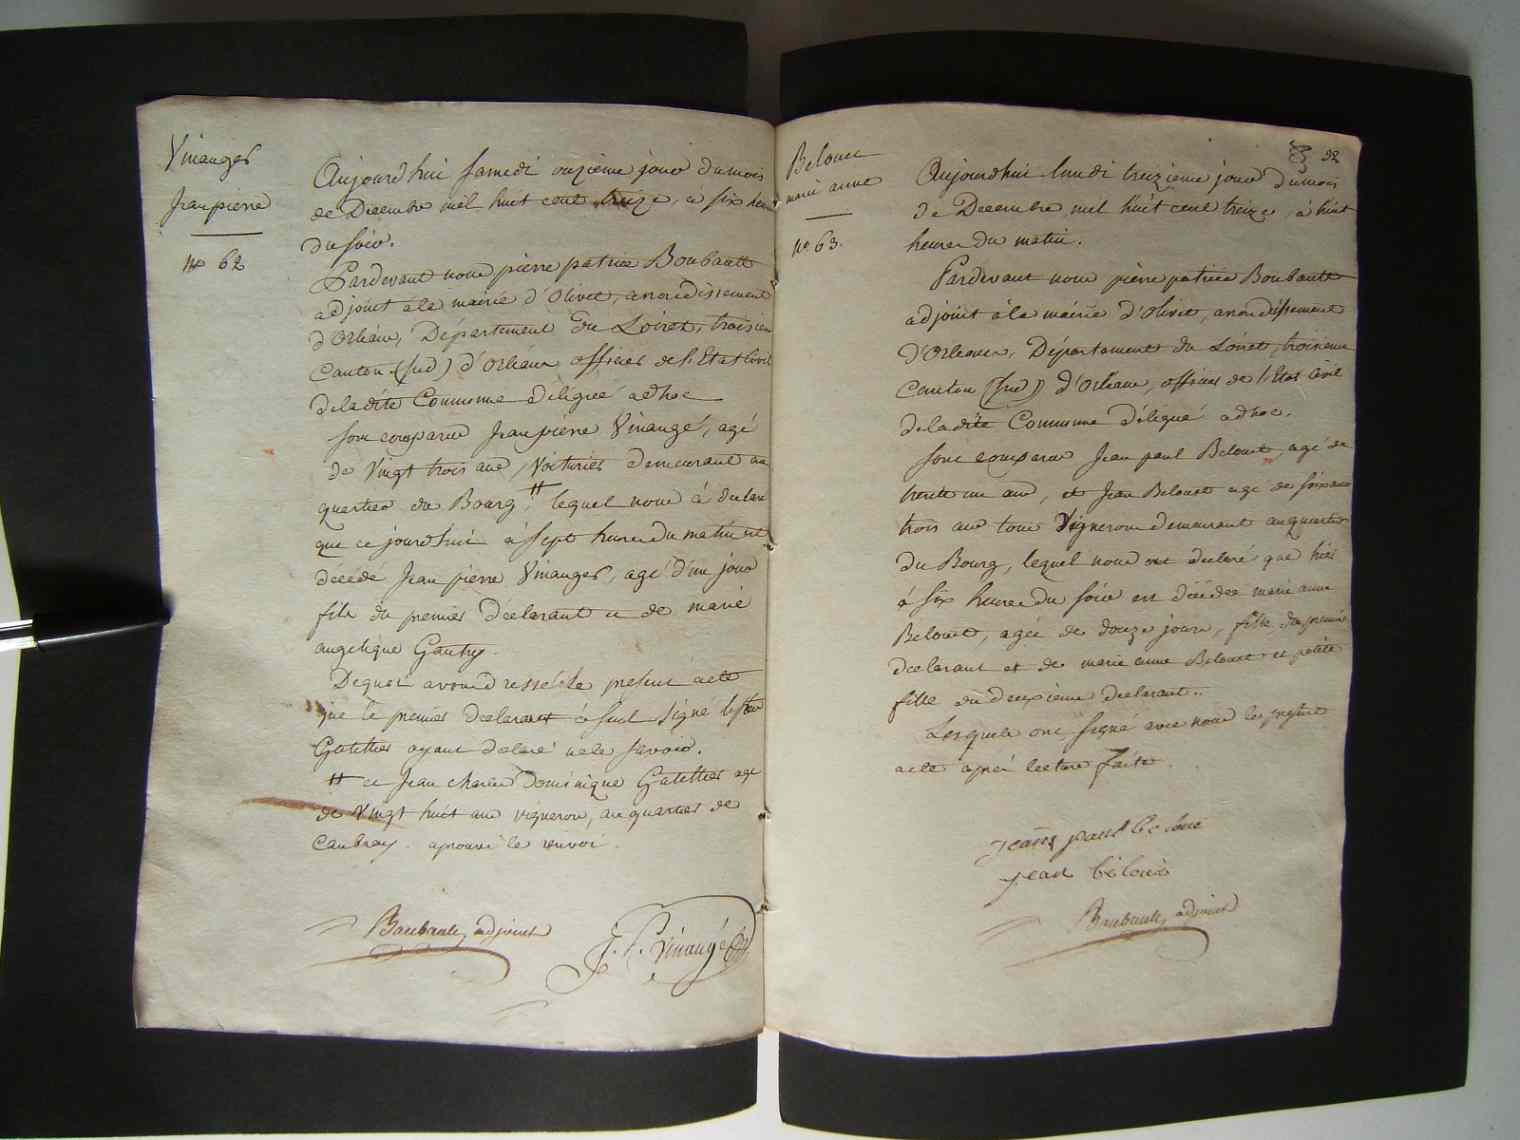 Vinanger
Jean pierre
no 62
Aujourd'hui samedi onzieme jour du mois
de Decembre mil huit cent treize, à six heu
du soir.
Pardevant nous pierre patrice Boubault
adjoint à la mairie d'Olivet, arrondissement
d'Orléans, Département du Loiret, troisiem
Canton (sud) d'Orléans officier de l'Etat Civil
de la dite Commune délégué adhoc
sont comparus Jean pierre Vinangé, agé
de Vingt trois ans, Voiturier demeurant au
quartier du Bourg, # lequel nous à declaré
que ce jourd'hui à sept heures du matin est
décédé Jean pierre Vinanger, agé d'un jour
fils du premier declarant et de marie
angelique Gautry.
Dequoi avons dressé le présent acte
que le premier declarant à seul signé le sieur
Gatellier ayant declaré ne le savoir.
# et Jean charles Dominique Gatellier agé
de Vingt huit ans vigneron, au quartier de
Caubray. aprouvé le renvoi.
Boubault, adjoint
J. P. Vinangé
32
Belouet
marie anne
no 63.
Aujourdhui lundi treizieme jour du mois
de Decembre mil huit cent treize, à huit
heures du matin.
Pardevant nous pierre patrice Boubault
adjoint à la mairie d'Olivet, arrondissement
d'Orleans, Département du Loiret, troisieme
Canton (sud) d'Orleans, officier de l'Etat Civil
de la dite Commune délégué adhoc.
sont comparus Jean paul Belouet, agé de
trente un ans, et Jean Belouet agé de soixante
trois ans tous Vignerons demeurant au quartier
du Bourg, lequel nous ont declaré que hier
à six heures du soir est décédée marie anne
Belouet, agée de douze jours, fille du premier
declarant et de marie anne Belouet et petite
fille du deuxieme declarant.
Lesquels ont signé avec nous le présent
acte après lecture faite.
jean paul beloué
jean béloué
Boubault, adjoint